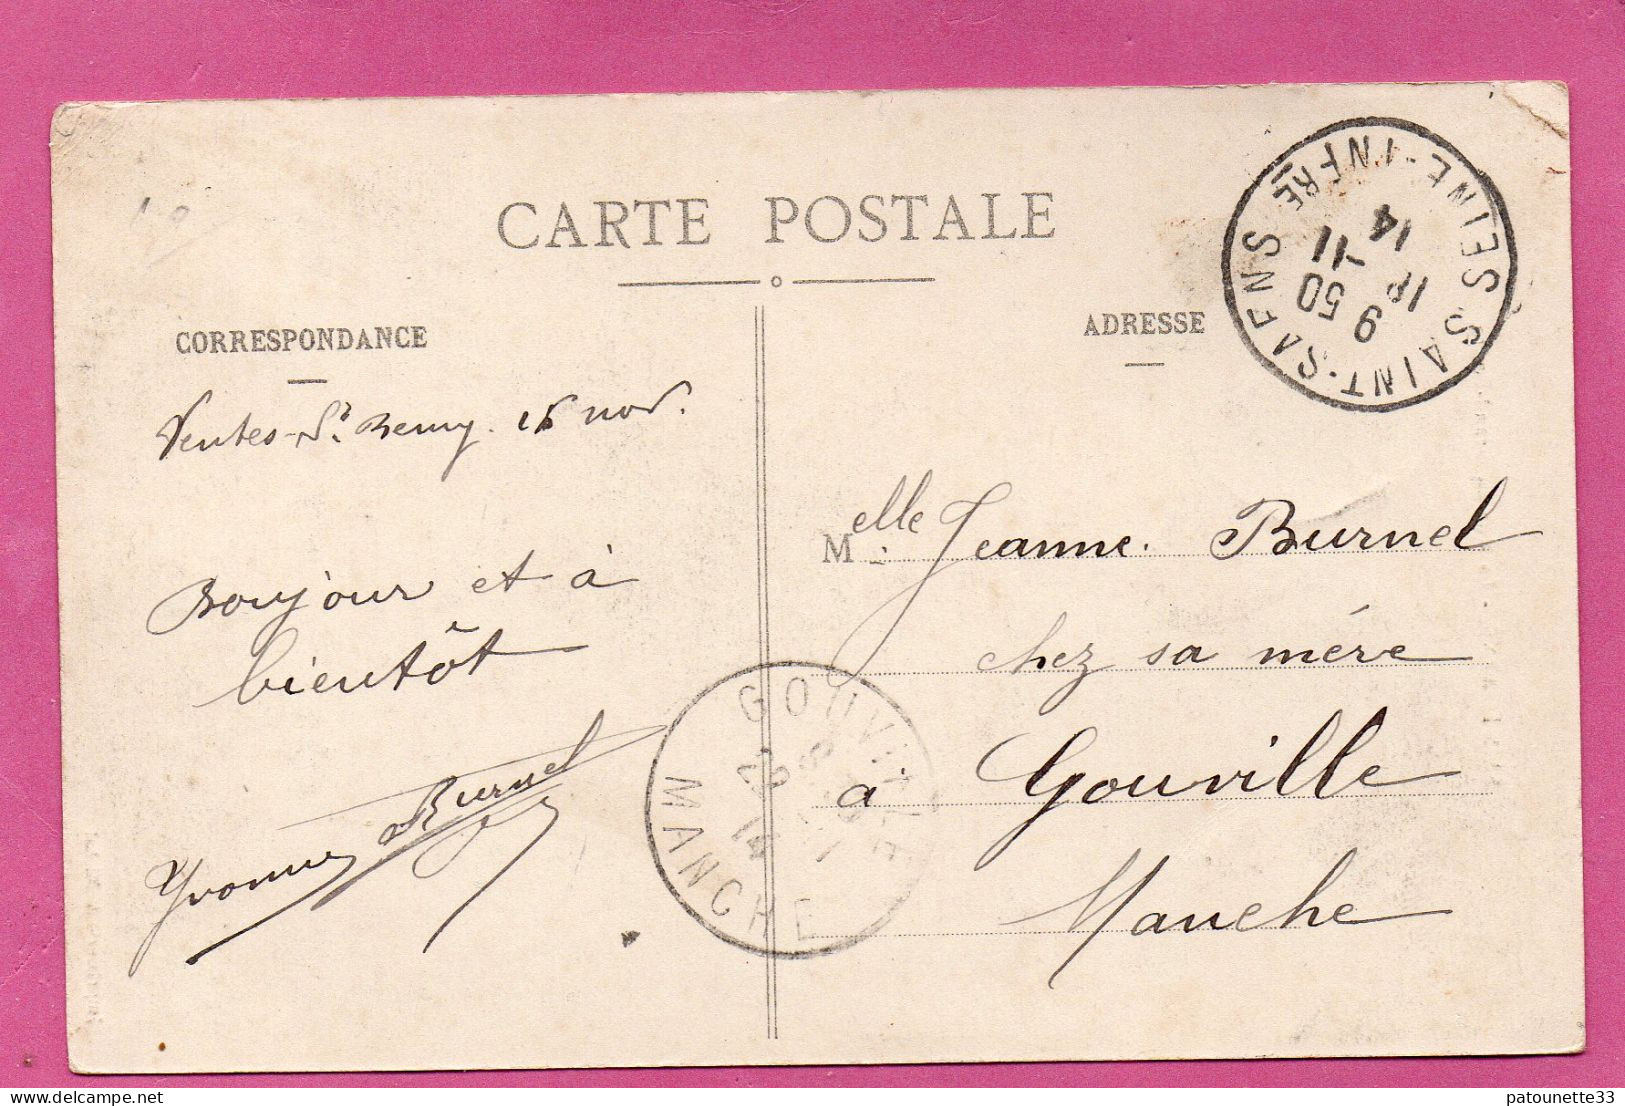 CARTE POSTALE
CORRESPONDANCE
Ventes-St. Remy. 15 nov.
Bonjour et à
bientôt
Yvonne Burnel
ADRESSE
Melle Jeanne. Burnel
chez sa mère
à Gouville
Manche
SAINT-SAENS SEINE-INFRE
9 50
-11
14
GOUVILLE
MANCHE
14
patounette33